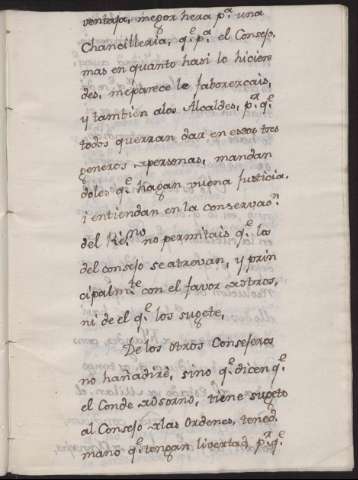 ventaja, mejor hera p.ª una
Chancilleria, q.e p.ª el Consejo,
mas en quanto hasi lo hicien
des, meparece le faborezcais,
y tambien alos Alcaldes, p.ª q.e
todos querran dar en essos tres
generos personas, mandan
doles q.e hagan buena Justicia,
i entiendan en la conservaō.n
del no permitais q.e los
del consejo se atrevan, y prin
cipalm.te con el favor otros,
ni de el q.e los sugete,
De los otros Consejeros
no hañadiré, sino q.e dicen q.e
el Conde Osorno, tiene sugeto
al Consejo las Ordenes, tened
mano q.e tengan libertad, p.ª q.e